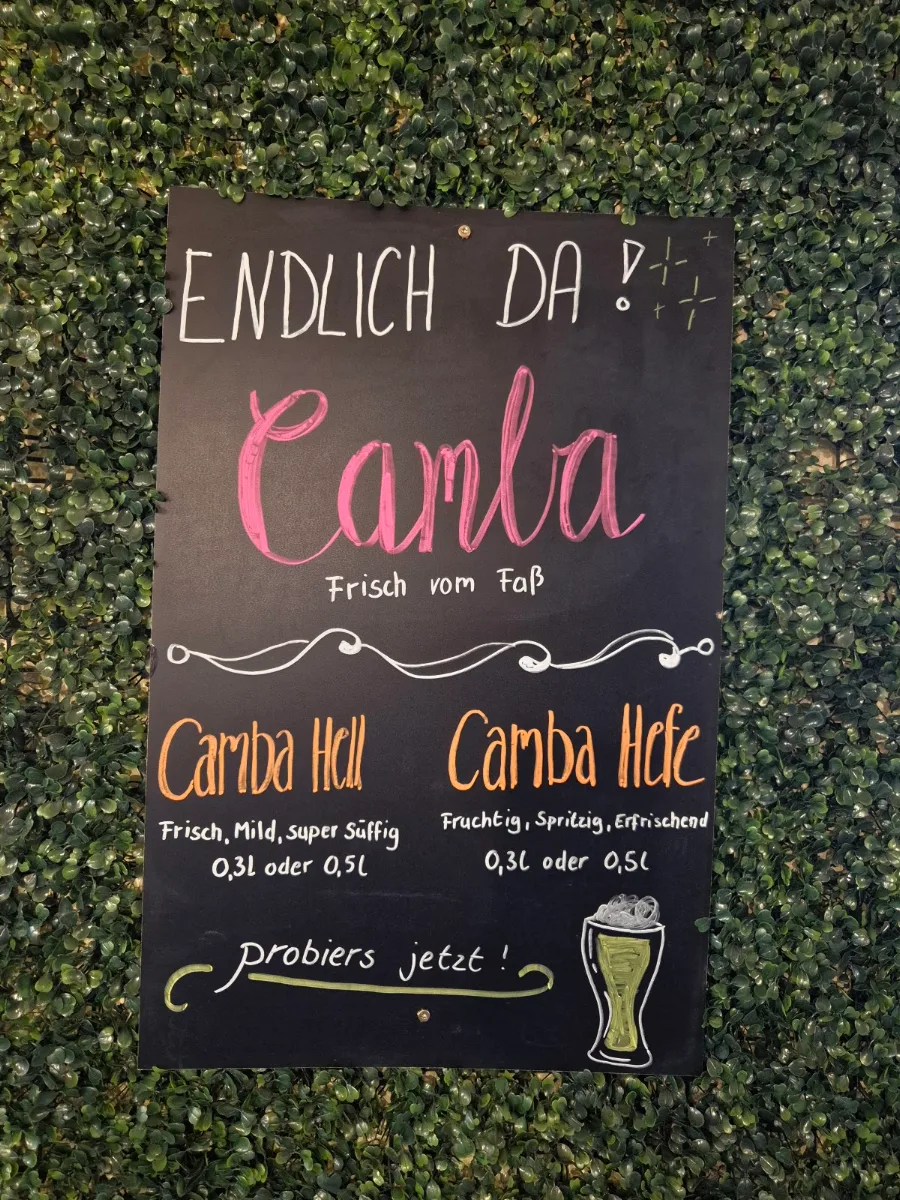 ENDLICH DA!
Camba
Frisch vom Faß
Camba Hell
Frisch, Mild, super Süffig
0,3l oder 0,5l
Camba Hefe
Fruchtig, Spritzig, Erfrischend
0,3l oder 0,5l
probiers jetzt!